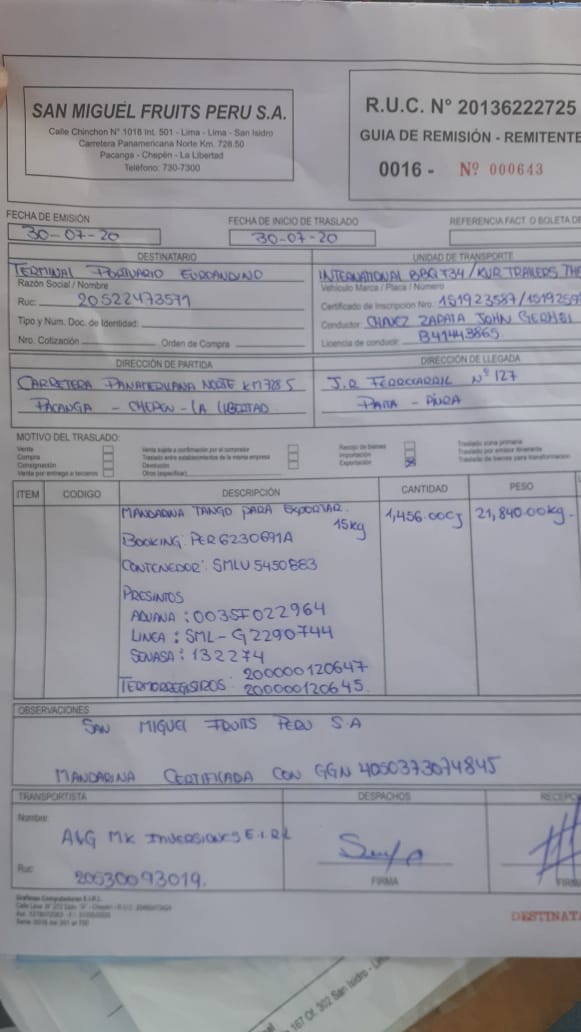 SAN MIGUEL FRUITS PERU S.A.
Calle Chinchon N° 1018 Int. 501 - Lima - Lima - San Isidro
Carretera Panamericana Norte Km. 728.50
Pacanga - Chepén - La Libertad
Teléfono: 730-7300
R.U.C. N° 20136222725
GUIA DE REMISIÓN - REMITENTE
0016 - Nº 000643
FECHA DE EMISIÓN
30-07-20
FECHA DE INICIO DE TRASLADO
30-07-20
REFERENCIA FACT. O BOLETA DE
DESTINATARIO
TERMINAL PORTUARIO EUROANDINO
Razón Social / Nombre
Ruc: 20522473571
Tipo y Num. Doc. de Identidad:
Nro. Cotización Orden de Compra
UNIDAD DE TRANSPORTE
INTERNATIONAL B8G T34 / KUR TRAILERS
Vehículo Marca / Placa / Número
Certificado de Inscripción Nro. 151923587/
Conductor: CHAVEZ ZAPATA JOHN
Licencia de conducir: B41443865
DIRECCIÓN DE PARTIDA
CARRETERA PANAMERICANA NORTE KM 728 5
PACANGA - CHEPEN - LA LIBERTAD
DIRECCIÓN DE LLEGADA
J.R FERROCARRIL Nº 127
PAITA - PIURA
MOTIVO DEL TRASLADO:
Venta
Compra
Consignación
Venta por entrega a terceros
Venta sujeta a confirmación por el comprador
Traslado entre establecimientos de la misma empresa
Devolución
Otros (especificar)
Recojo de bienes
Importación
Exportación
Traslado zona primaria
Traslado por emisor itinerante
Traslado de bienes para transformación
ITEM CODIGO DESCRIPCIÓN CANTIDAD PESO
MANDARINA TANGO PARA EXPORTAR. 1,456.00CJ 21,840.00kg
15kg
BOOKING: PER6230691A
CONTENEDOR: SMLU 5450883
PRESINTOS
ADUANA: 0035F022964
LINEA: SML-G2290744
SENASA: 132274
200000120647
TERMORREGISTROS: 200000120645.
OBSERVACIONES
SAN MIGUEL FRUITS PERU S.A
MANDARINA CERTIFICADA CON GGN 4050373074845
TRANSPORTISTA
Nombre:
A&G MK INVERSIONES E.I.R.L
Ruc:
20530093019.
DESPACHOS
FIRMA
RECEPC
FIRM
Graficas Computadoras E.I.R.L.
DESTINAT
167 Of. 302 San Isidro - Lim